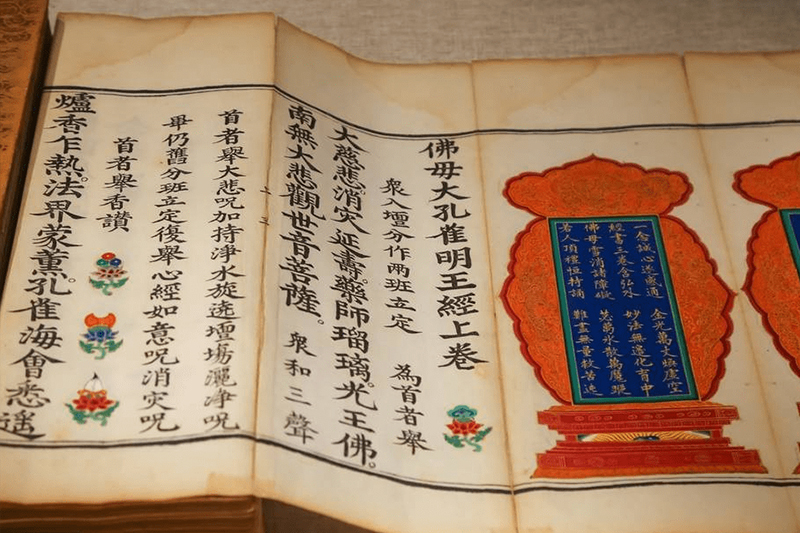 一念誠心遂感通 金光萬丈煥虛空
經書三卷含弘 妙法無邊化育中
佛母雪消諸障礙
若人頂禮恒持誦 難盡無量
佛母大孔雀明王經上卷
衆入壇分作兩班立定 為首者舉
大慈悲消灾延壽。藥師瑠璃。光王佛。
南無大悲觀世音菩薩。 衆和三聲
首者舉大悲呪加持淨水旋遶壇場灑淨呪
畢仍舊分班立定復舉心經如意呪消灾呪
首者舉香讃
爐香乍熱。法界蒙熏。孔雀海會悉遥